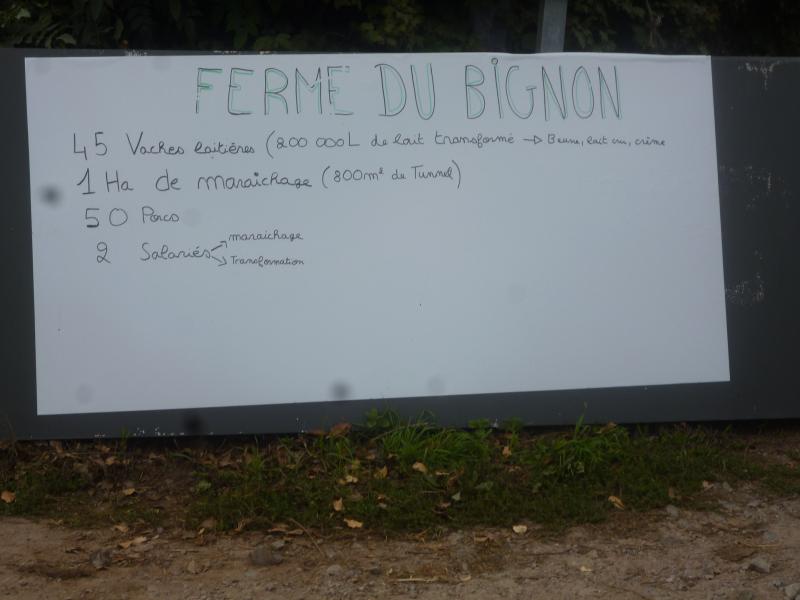 FERME DU BIGNON
45 Vaches laitières (200 000L de lait transformé → Beurre, lait cru, crème
1 Ha de maraichage (800m² de Tunnel)
50 Porcs
2 Salariés → maraichage
→ Transformation